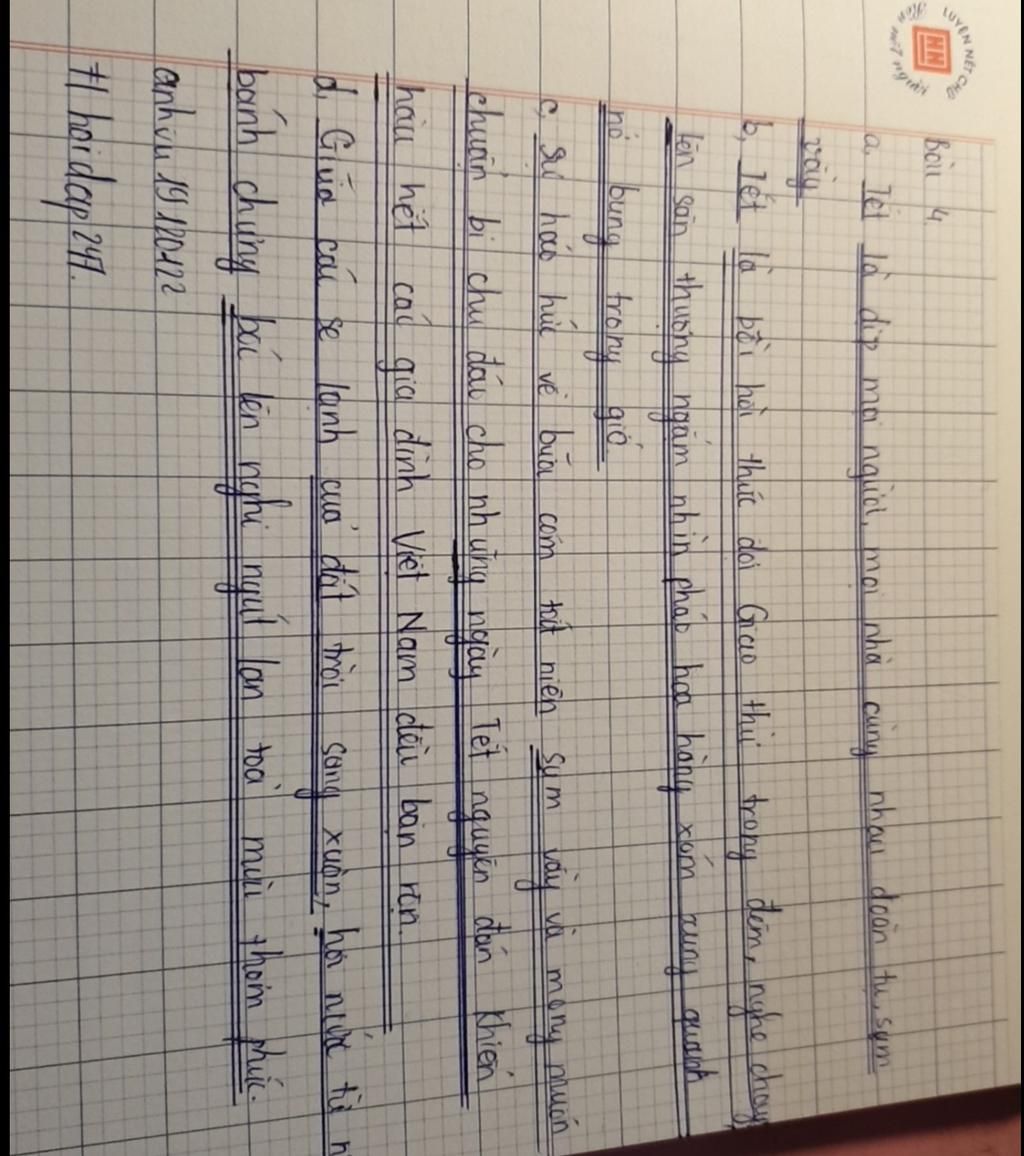 LUYỆN NÉT CHỮ
Rèn nết người
Bài 4.
a, Tết là dịp mọi người, mọi nhà cùng nhau đoàn tụ, sum
vầy
b, Tết là bồi hồi thức đợi Giao thừ trong đêm, nghe chạy
lên sân thượng ngắm nhìn pháo hoa hàng xóm xung quanh
nổ bung trong gió
c, sự háo hức về bữa cơm tất niên sum vầy và mong muốn
chuẩn bị chu đáo cho những ngày Tết nguyên đán khiến
hầu hết các gia đình Việt Nam đều bận rộn.
d, Giữa cái se lạnh của đất trời sang xuân, hơi nước từ n
bánh chưng bốc lên nghi ngút lan toả mùi thơm phức.
anhvu19112012
#hoidap247.